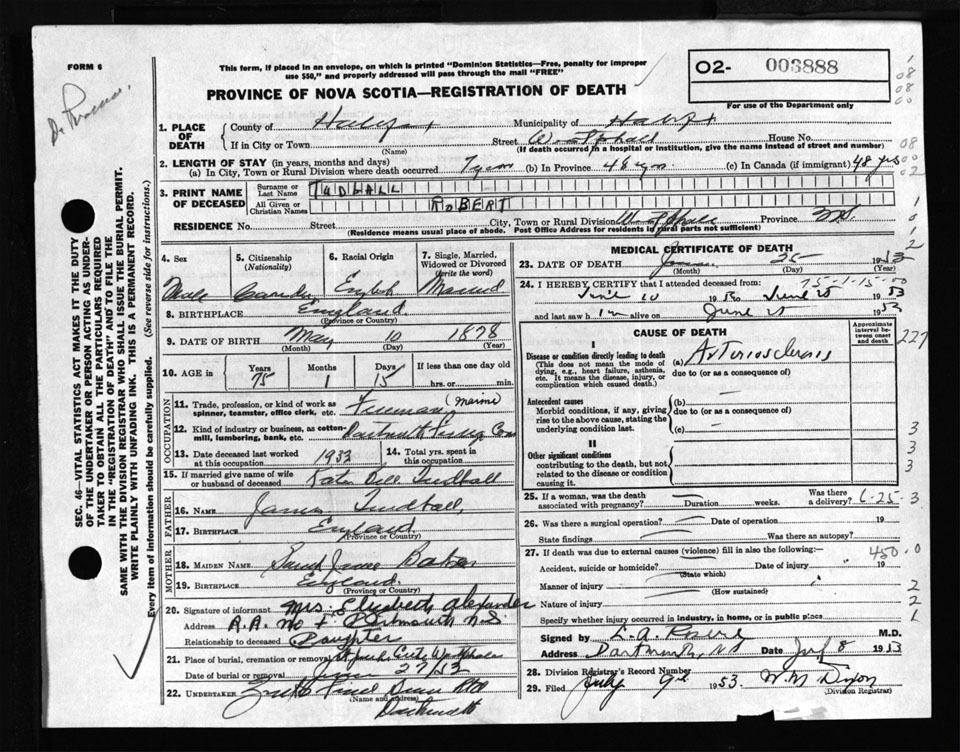 FORM 6
This form, if placed in an envelope, on which is printed "Dominion Statistics—Free, penalty for improper
use $50," and properly addressed will pass through the mail "FREE"
PROVINCE OF NOVA SCOTIA—REGISTRATION OF DEATH
02- 003888
For use of the Department only
1. PLACE OF DEATH
County of Halifax Municipality of Halifax
If in City or Town (Name) Street Westphal House No.
(If death occurred in a hospital or institution, give the name instead of street and number)
2. LENGTH OF STAY (in years, months and days)
(a) In City, Town or Rural Division where death occurred 7 yrs (b) In Province 48 yrs. (c) In Canada (if immigrant) 48 yrs
3. PRINT NAME OF DECEASED
Surname or Last Name TUDBALL
All Given or Christian Names ROBERT
RESIDENCE No. Street City, Town or Rural Division Westphal Province N.S.
(Residence means usual place of abode. Post Office Address for residents in rural parts not sufficient)
4. Sex Male
5. Citizenship (Nationality)
6. Racial Origin English
7. Single, Married, Widowed or Divorced (Write the word) Married
8. BIRTHPLACE England (Province or Country)
9. DATE OF BIRTH May (Month) 10 (Day) 1878 (Year)
10. AGE in Years 75 Months 1 Days 15 If less than one day old hrs. or min.
OCCUPATION
11. Trade, profession, or kind of work as spinner, teamster, office clerk, etc. Fireman (Marine)
12. Kind of industry or business, as cotton-mill, lumbering, bank, etc. Dartmouth Ferry Com
13. Date deceased last worked at this occupation 1933
14. Total yrs. spent in this occupation
15. If married give name of wife or husband of deceased Dell Tudball
FATHER
16. NAME James Tudball
17. BIRTHPLACE England (Province or Country)
MOTHER
18. MAIDEN NAME Sarah Jane Baker
19. BIRTHPLACE England (Province or Country)
20. Signature of informant Mrs. Elizabeth Alexander
Address R.R. No 1 Dartmouth N.S.
Relationship to deceased Daughter
21. Place of burial, cremation or removal
Date of burial or removal June 27/53
22. UNDERTAKER (Name and address)
Dartmouth
MEDICAL CERTIFICATE OF DEATH
23. DATE OF DEATH June (Month) 25 (Day) 1953 (Year)
24. I HEREBY CERTIFY that I attended deceased from: 75-1-15-00
June 10 19 to June 25 1953
and last saw him alive on June 25 1953
CAUSE OF DEATH
Approximate interval between onset and death
I
Disease or condition directly leading to death (a) Arteriosclerosis
(This does not mean the mode of dying, e.g., heart failure, asthenia, etc. It means the disease, injury, or complication which caused death.)
due to (or as a consequence of)
Antecedent causes (b) —
Morbid conditions, if any, giving rise to the above cause, stating the underlying condition last.
due to (or as a consequence of)
(c) —
II
Other significant conditions
contributing to the death, but not related to the disease or condition causing it.
25. If a woman, was the death associated with pregnancy? Duration weeks. Was there a delivery? 6-25-3
26. Was there a surgical operation? Date of operation 19
State findings Was there an autopsy?
27. If death was due to external causes (violence) fill in also the following:—
450.0
Accident, suicide or homicide? (State which) Date of injury 19
Manner of injury (How sustained)
Nature of injury
Specify whether injury occurred in industry, in home, or in public place
Signed by M.D.
Address Dartmouth, N.S. Date July 8 1953
28. Division Registrar's Record Number
29. Filed July 9th 1953. W.M. Dixon
(Division Registrar)
SEC. 46—VITAL STATISTICS ACT MAKES IT THE DUTY
OF THE UNDERTAKER OR PERSON ACTING AS UNDER-
TAKER TO OBTAIN ALL THE PARTICULARS REQUIRED
IN THE "REGISTRATION OF DEATH" AND TO FILE THE
SAME WITH THE DIVISION REGISTRAR WHO SHALL ISSUE THE BURIAL PERMIT.
WRITE PLAINLY WITH UNFADING INK. THIS IS A PERMANENT RECORD.
Every item of information should be carefully supplied. (See reverse side for instructions.)